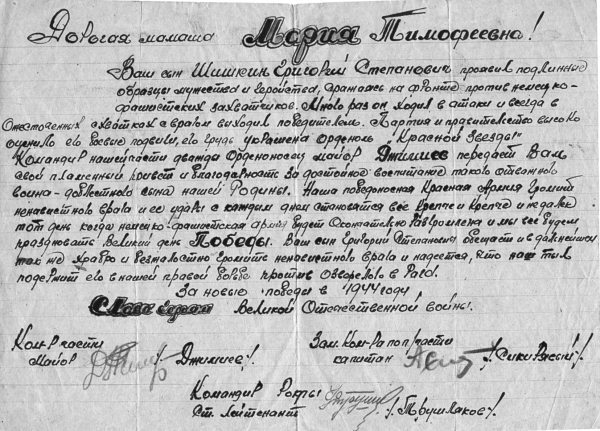 Дорогая мамаша Мария Тимофеевна!
Ваш сын Шишкин Григорий Степанович проявил подлинные
образцы мужества и геройства, сражаясь на фронте против немецко-
фашистских захватчиков. Много раз он ходил в атаки и всегда в
ожесточенных схватках с врагом выходил победителем. Партия и правительство высоко
оценило его боевые подвиги, его грудь украшена орденом "Красной Звезды"
Командир нашей части дважды Орденоносец майор Джилиев передаёт Вам
свой пламенный привет и благодарность за достойное воспитание такого отважного
воина-доблестного сына нашей Родины. Наша победоносная Красная Армия громит
ненавистного врага и ее удары с каждым днем становятся все крепче и крепче и недалек
тот день когда немецко-фашистская армия будет окончательно разгромлена и мы все будем
праздновать великий день Победы. Ваш сын Григорий Степанович обещает и в дальнейшем
так же храбро и безжалостно громить ненавистного врага и надеется, что наш тыл
поддержит его в нашей правой борьбе против озверелого врага.
За новые победы в 1944 году
Слава героям Великой Отечественной войны.
Ком-р части Зам. Ком-ра по п/части
майор /Джилиев/. капитан
Командир роты
Ст. лейтенант